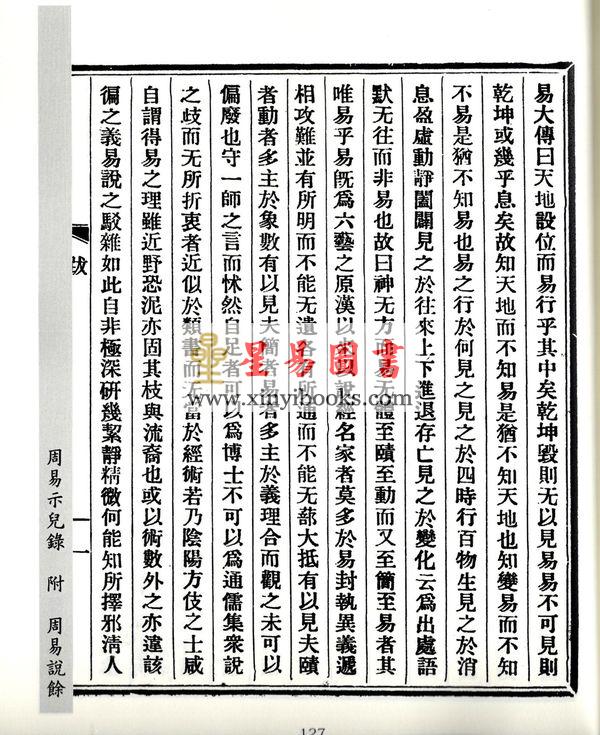 易大傳曰天地設位而易行乎其中矣乾坤毀則无以見易易不可見則
乾坤或幾乎息矣故知天地而不知易是猶不知天地也知變易而不知
不易是猶不知易也易之行於何見之見之於四時行百物生見之於消
息盈虛動靜闔闢見之於往來上下進退存亡見之於變化云為出處語
默无往而非易也故曰神无方而易无體至賾至動而又至簡至易者其
唯易乎易旣為六藝之原漢以來以說經名家者莫多於易封執異義遞
相攻難並有所明而不能无遺各有所通而不能无蔀大抵有以見夫賾
者動者多主於象數有以見夫簡者易者多主於義理合而觀之未可以
偏廢也守一師之言而怵然自足者可以為博士不可以為通儒集衆說
之歧而无所折衷者近似於類書而无當於經術若乃陰陽方伎之士咸
自謂得易之理雖近野恐泥亦固其枝與流裔也或以術數外之亦違該
徧之義易說之駁雜如此自非極深研幾絜靜精微何能知所擇邪淸人
跋
一
周易示兒錄 附 周易說餘
127
星易圖書
www.xinyibooks.com